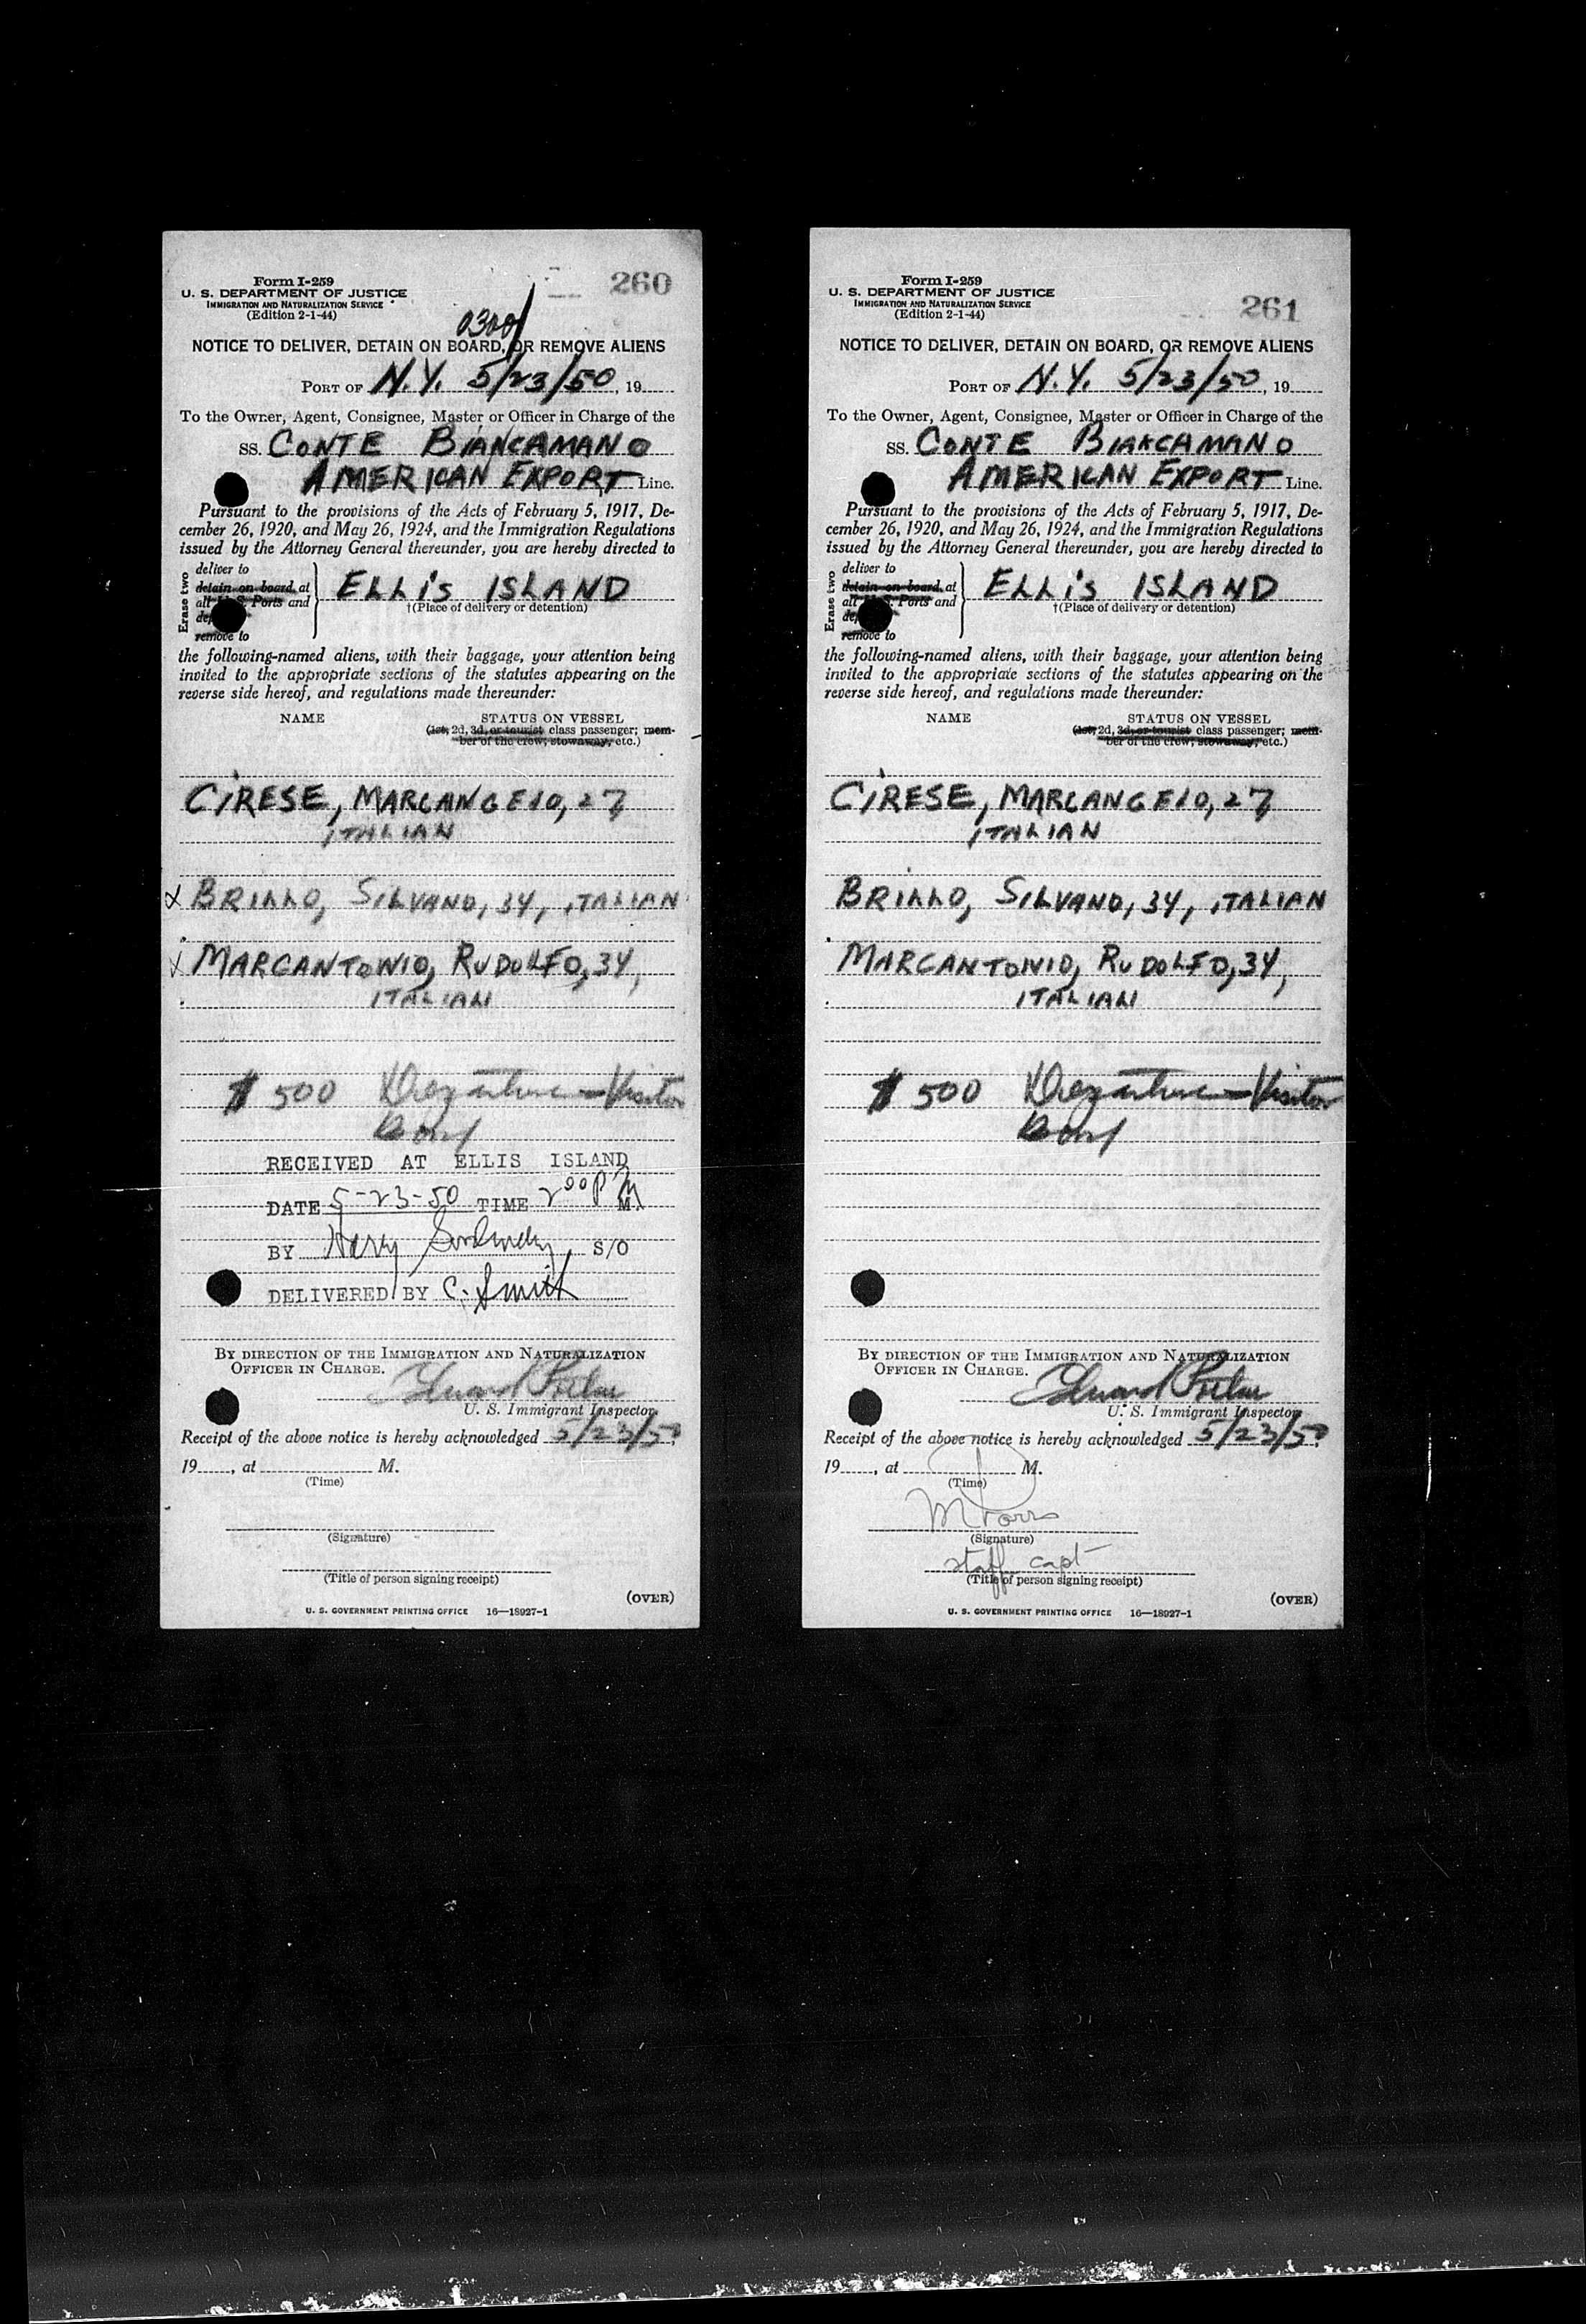 Form I-259
U. S. DEPARTMENT OF JUSTICE
IMMIGRATION AND NATURALIZATION SERVICE
(Edition 2-1-44)
260
0300
NOTICE TO DELIVER, DETAIN ON BOARD, OR REMOVE ALIENS
PORT OF N.Y. 5/23/50, 19
To the Owner, Agent, Consignee, Master or Officer in Charge of the
SS. CONTE BIANCAMANO
AMERICAN EXPORT Line.
Pursuant to the provisions of the Acts of February 5, 1917, De-
cember 26, 1920, and May 26, 1924, and the Immigration Regulations
issued by the Attorney General thereunder, you are hereby directed to
Erase two
deliver to
detain on board, at
all U. S. Ports and
remove to
ELLIS ISLAND
†(Place of delivery or detention)
the following-named aliens, with their baggage, your attention being
invited to the appropriate sections of the statutes appearing on the
reverse side hereof, and regulations made thereunder:
NAME STATUS ON VESSEL
(1st, 2d, 3d, or tourist class passenger; mem-
ber of the crew, stowaway, etc.)
CIRESE, MARCANGELO, 27
ITALIAN
X BRILLO, SILVANO, 34, ITALIAN
X MARCANTONIO, RUDOLFO, 34,
ITALIAN
$ 500 Departure-Visitor
Bond
RECEIVED AT ELLIS ISLAND
DATE 5-23-50 TIME 2 00 P M
BY Harry S/O
DELIVERED BY C. Smith
BY DIRECTION OF THE IMMIGRATION AND NATURALIZATION
OFFICER IN CHARGE.
Edward
U. S. Immigrant Inspector.
Receipt of the above notice is hereby acknowledged 5/23/50,
19, at M.
(Time)
(Signature)
(Title of person signing receipt)
(OVER)
U. S. GOVERNMENT PRINTING OFFICE 16—18927-1
Form I-259
U. S. DEPARTMENT OF JUSTICE
IMMIGRATION AND NATURALIZATION SERVICE
(Edition 2-1-44)
261
NOTICE TO DELIVER, DETAIN ON BOARD, OR REMOVE ALIENS
PORT OF N.Y. 5/23/50, 19
To the Owner, Agent, Consignee, Master or Officer in Charge of the
SS. CONTE BIANCAMANO
AMERICAN EXPORT Line.
Pursuant to the provisions of the Acts of February 5, 1917, De-
cember 26, 1920, and May 26, 1924, and the Immigration Regulations
issued by the Attorney General thereunder, you are hereby directed to
Erase two
deliver to
detain on board, at
all U. S. Ports and
remove to
ELLIS ISLAND
†(Place of delivery or detention)
the following-named aliens, with their baggage, your attention being
invited to the appropriate sections of the statutes appearing on the
reverse side hereof, and regulations made thereunder:
NAME STATUS ON VESSEL
(1st, 2d, 3d, or tourist class passenger; mem-
ber of the crew, stowaway, etc.)
CIRESE, MARCANGELO, 27
ITALIAN
BRILLO, SILVANO, 34, ITALIAN
MARCANTONIO, RUDOLFO, 34,
ITALIAN
$ 500 Departure-Visitor
Bond
BY DIRECTION OF THE IMMIGRATION AND NATURALIZATION
OFFICER IN CHARGE.
Edward
U. S. Immigrant Inspector.
Receipt of the above notice is hereby acknowledged 5/23/50,
19, at M.
(Time)
(Signature)
staff capt
(Title of person signing receipt)
(OVER)
U. S. GOVERNMENT PRINTING OFFICE 16—18927-1